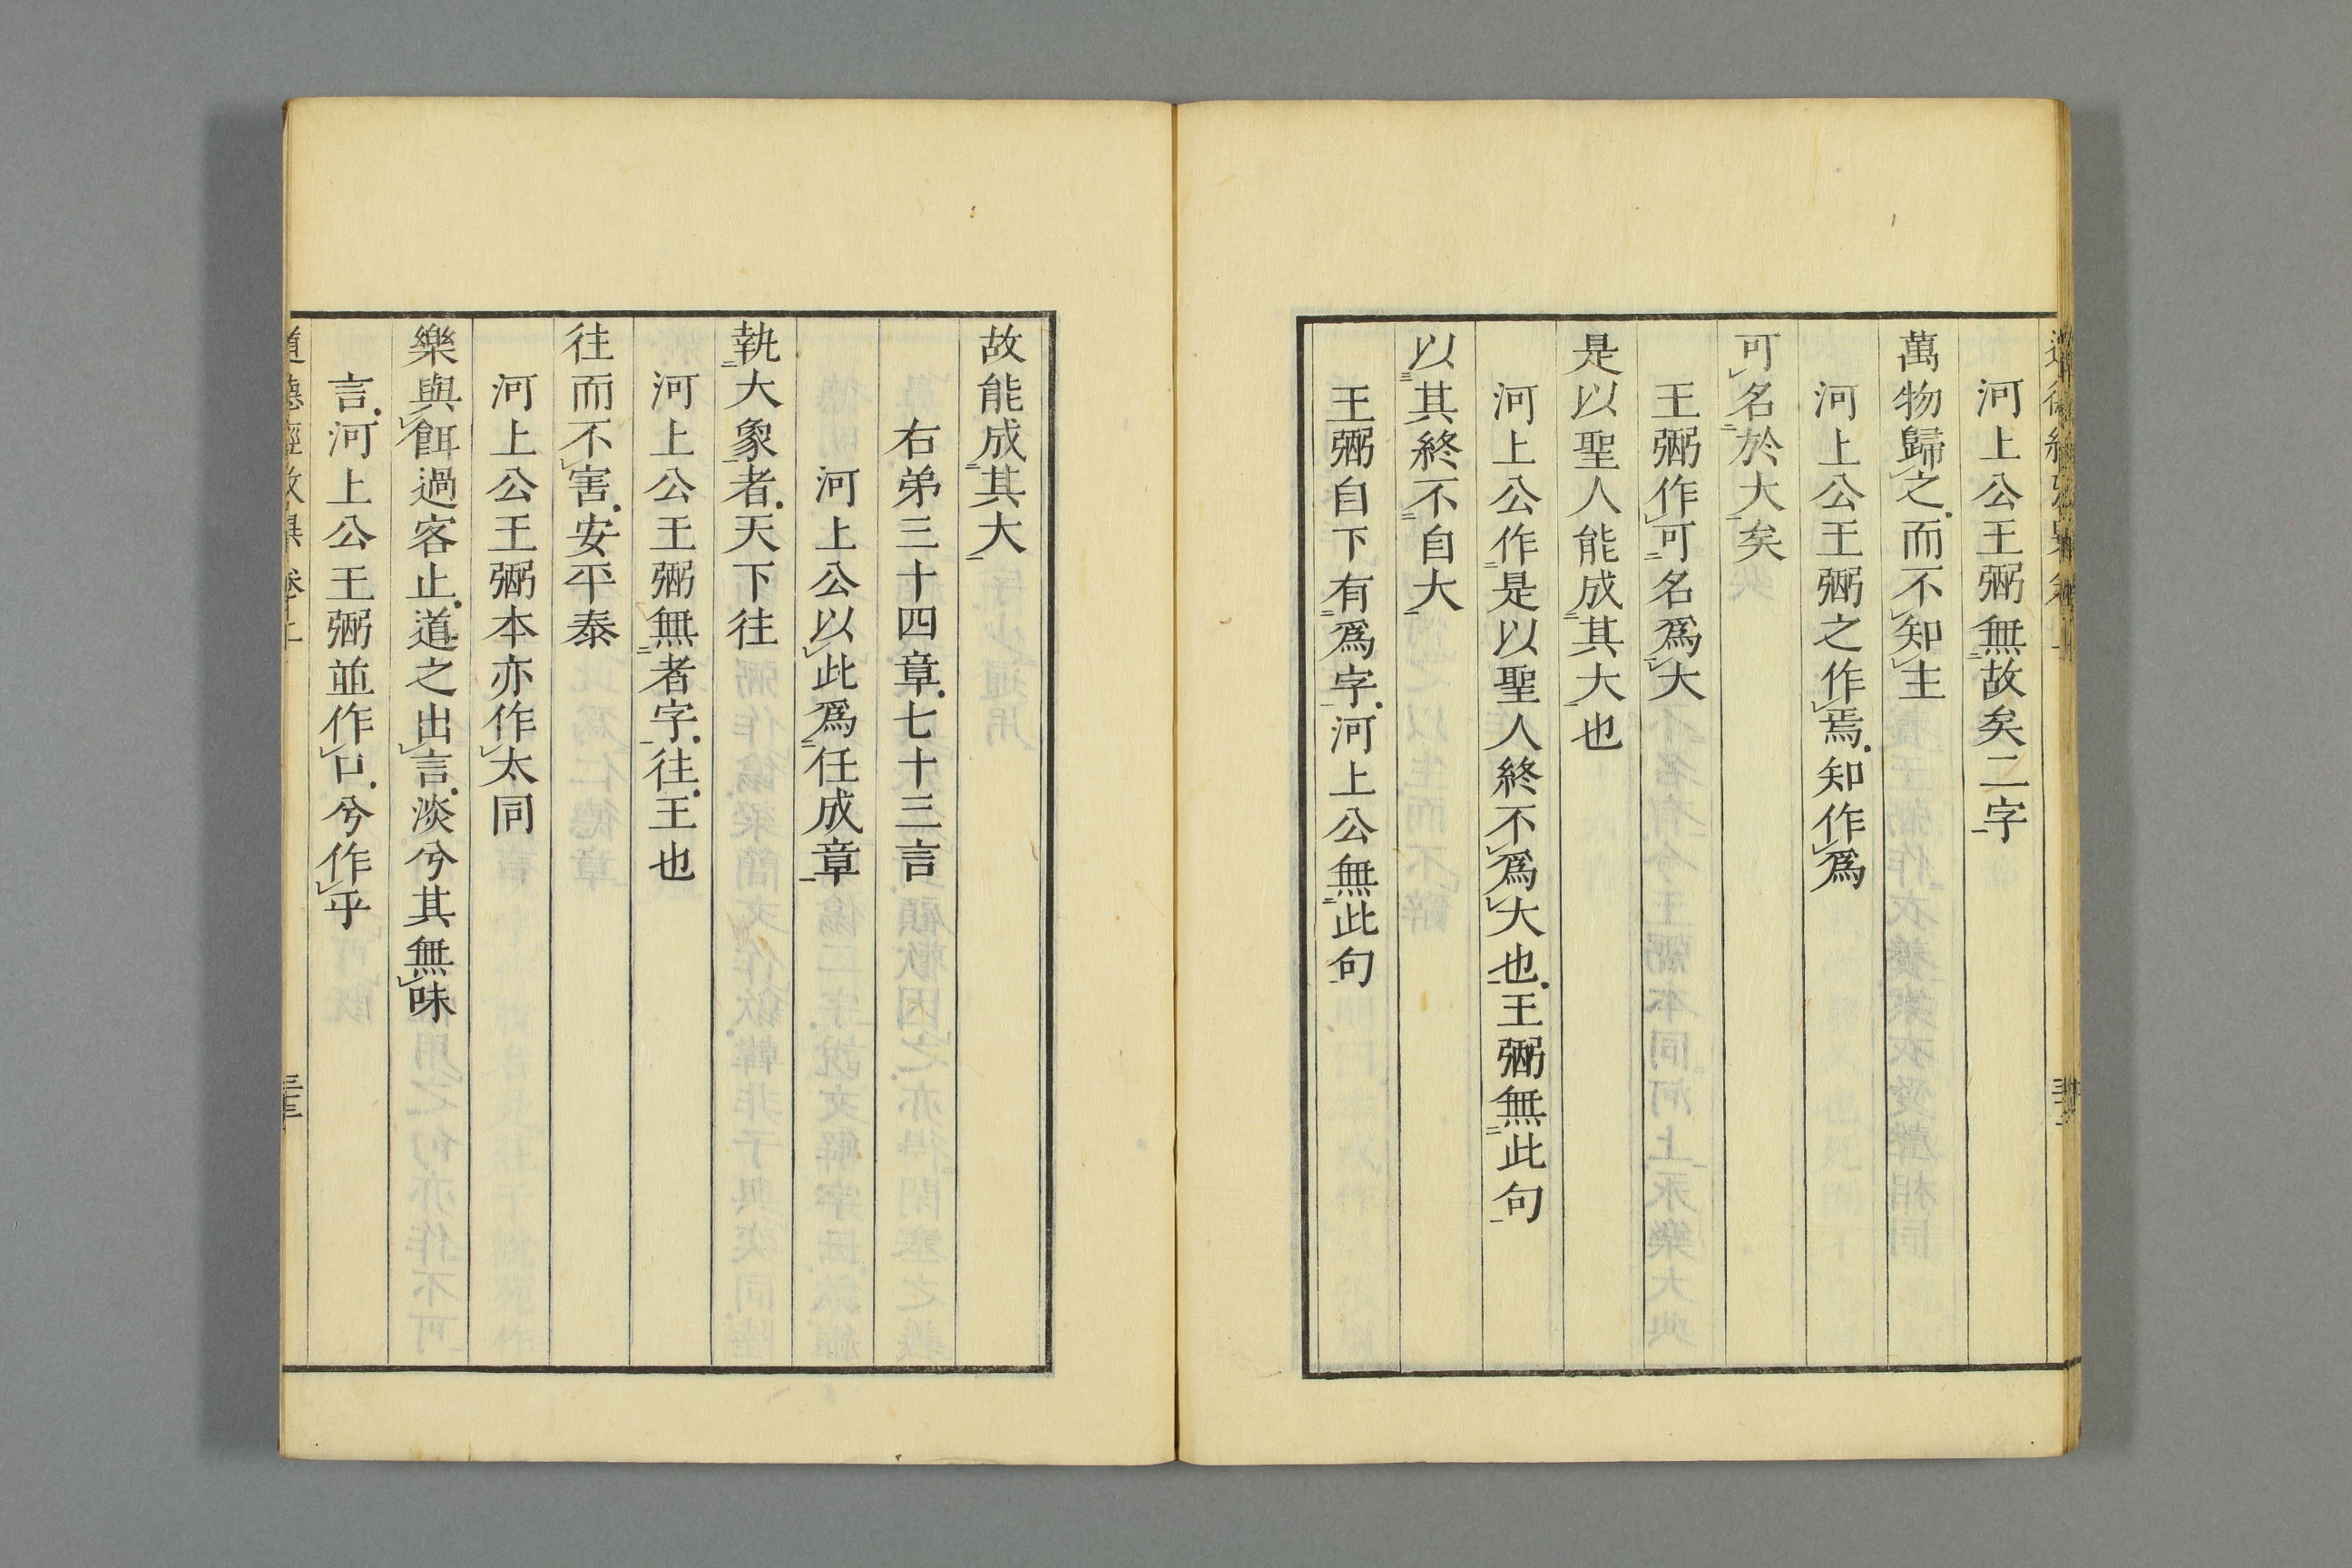 河上公王弼無故矣二字
萬物歸之而不知主
河上公王弼之作焉知作爲
可名於大矣
王弼作可名爲大
是以聖人能成其大也
河上公作是以聖人終不爲大也王弼無此句
以其終不自大
王弼自下有爲字河上公無此句
故能成其大
右弟三十四章七十三言
河上公以此爲任成章
執大象者天下往
河上公王弼無者字往王也
往而不害安平泰
河上公王弼本亦作太同
樂與餌過客止道之出言淡兮其無味
言河上公王弼並作口兮作乎
道德經攷異卷上